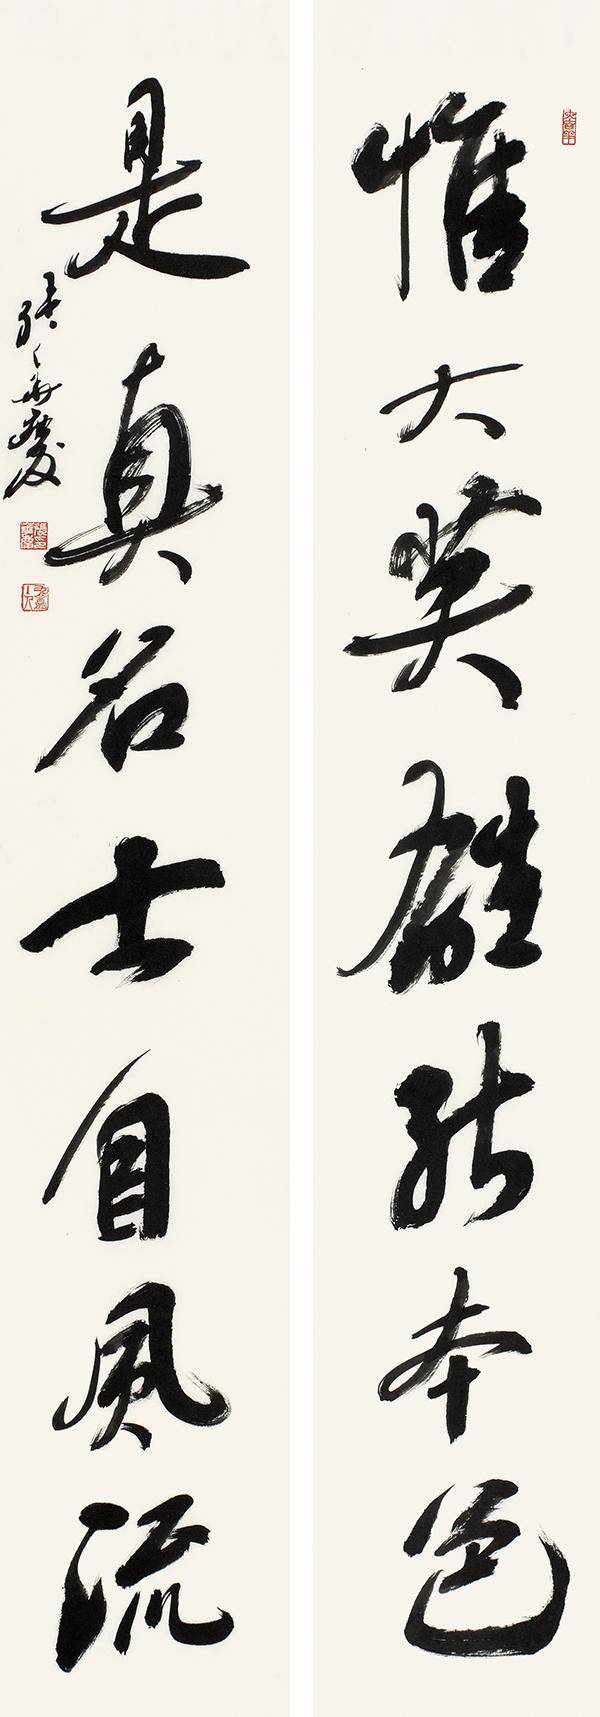 惟大英雄能本色
是真名士自風流
張華慶